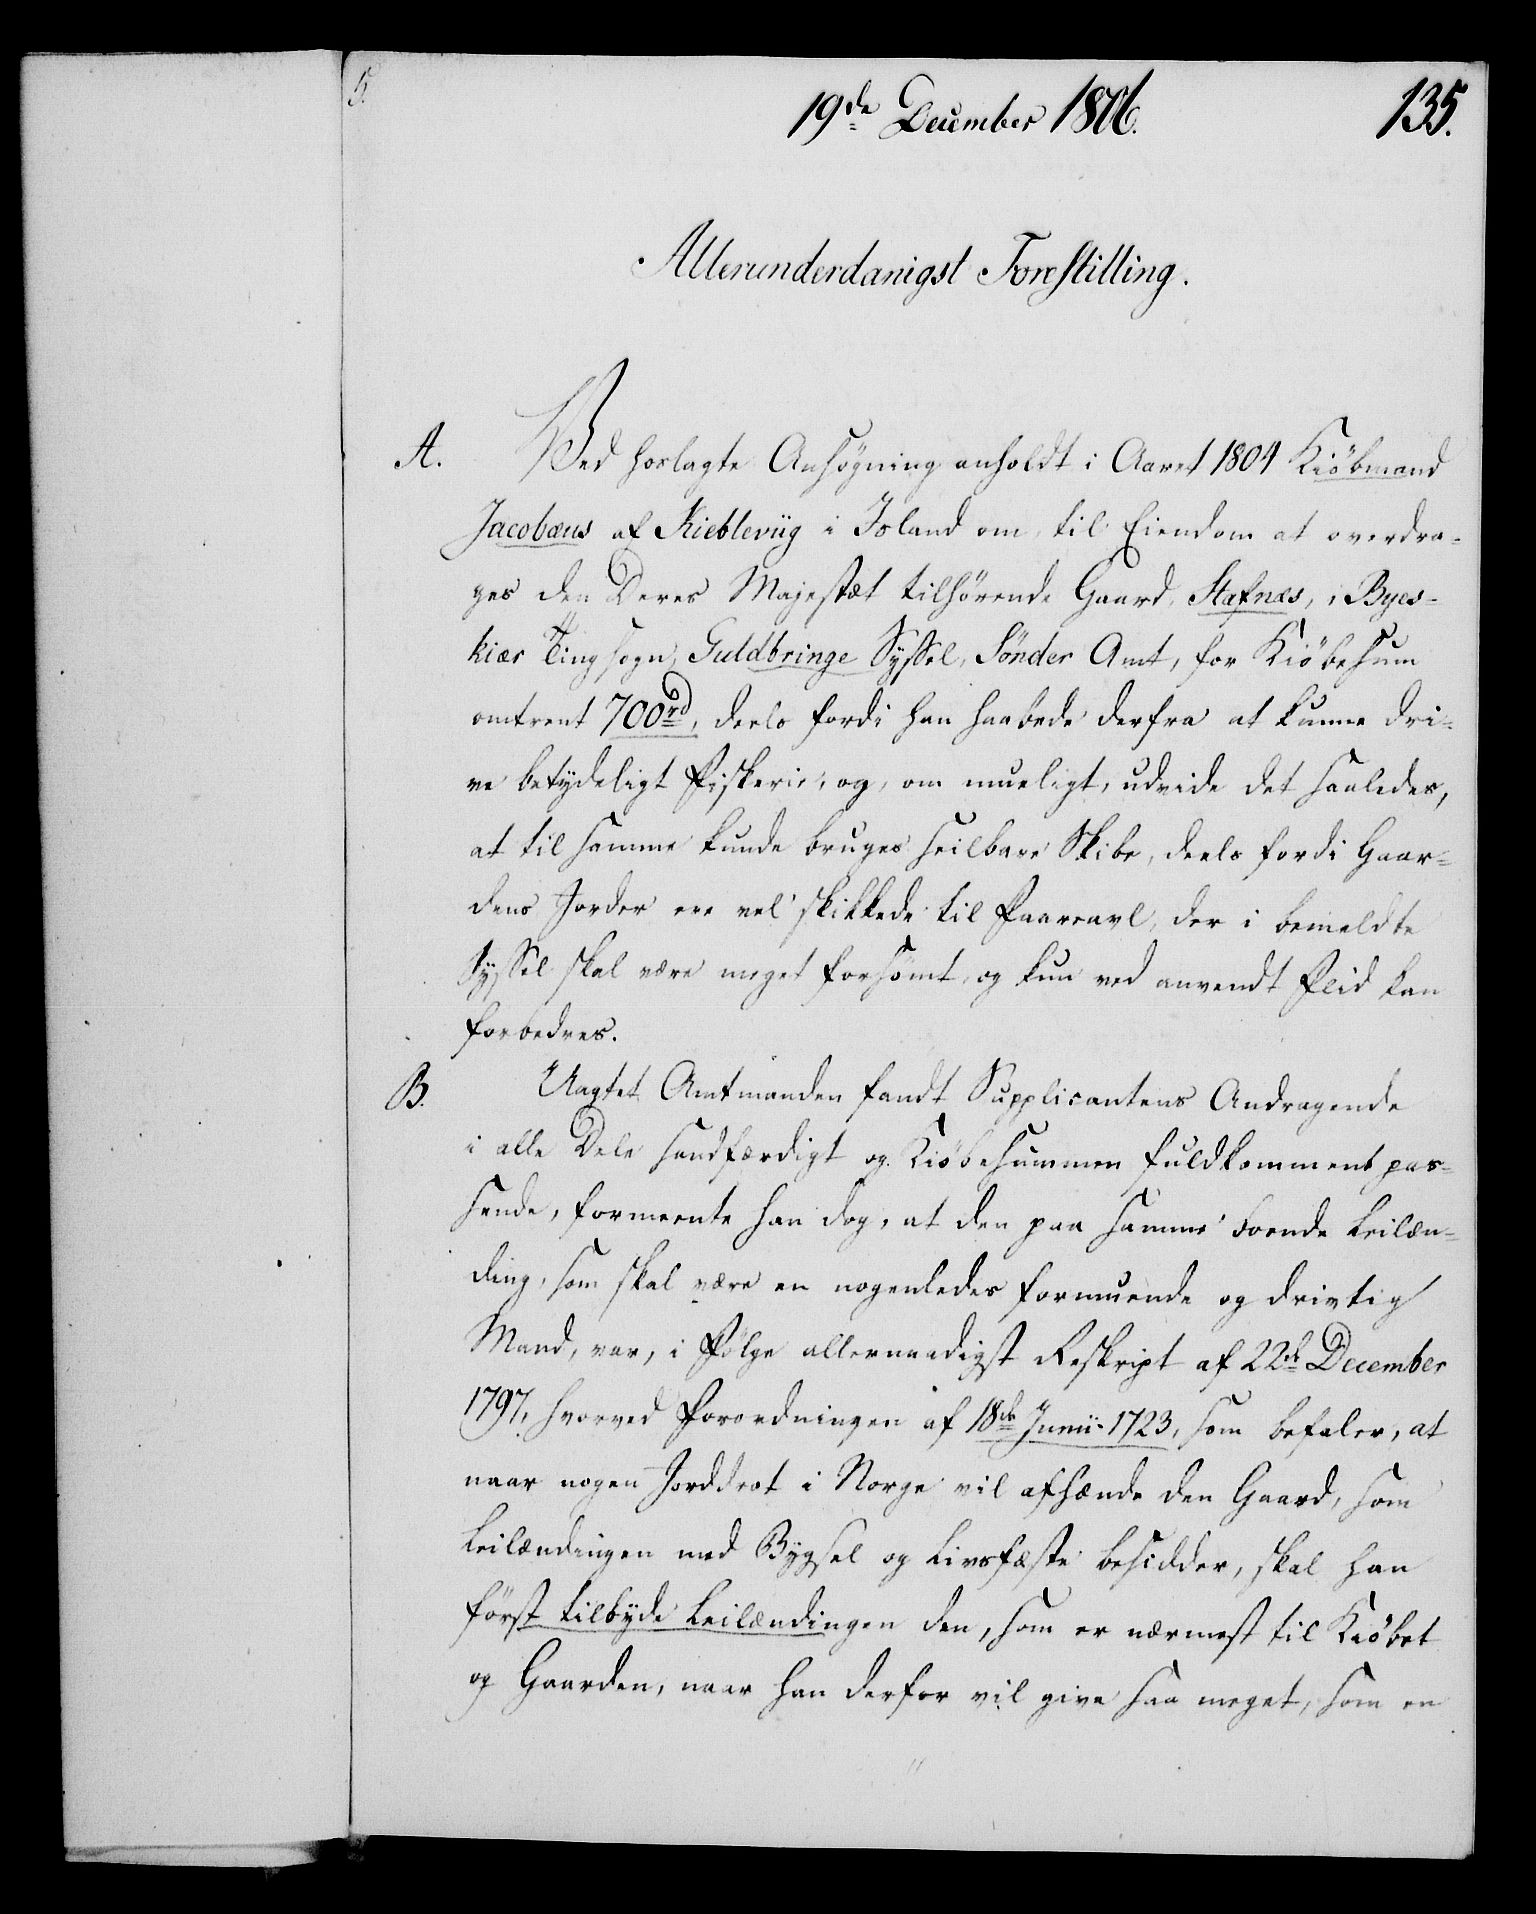 5.
19de December 1806.
135.
Allerunderdanigst Forestilling.
A.
Ved hoslagte Ansøgning anholdt i Aaret 1804 Kiöbmand
Jacobæus af Kieblevüg i Island om, til Eiendom at overdra-
ges den Deres Majestæt tilhörende Gaard, Stafnæs, i Byes-
kiær Tingsogn, Guldbringe Syssel, Sönder Amt, for Kiöbesum
omtrent 700rd, deels fordi han haabede derfra at kunne dri-
ve betydeligt Fiskerie, og, om mueligt, udvide det saaledes,
at til samme kunde bruges seilbare Skibe, deels fordi Gaar-
dens Jorder ere vel skikkede til Faareavl, der i bemeldte
Syssel skal være meget forsömt, og kun ved anvendt Flid kan
forbedres.
B.
Uagtet Amtmanden fandt Supplicantens Andragende
i alle Dele sandfærdigt og Kiöbesummen fuldkomment pas-
sende, formeente han dog, at den paa samme boende Leilæn-
ding, som skal være en nogenledes formuende og drivtig
Mand, var, i Fölge allernaadigst Reskript af 22de December
1797, hvorved Forordningen af 18de Junii 1723, som befaler, at
naar nogen Jorddrot i Norge vil afhænde den Gaard, som
Leilændingen med Bygsel og Livsfæste besidder, skal han
först tilbyde Leilændingen den, som er nærmest til Kiöbet
og Gaarden, naar han derfor vil give saa meget, som en